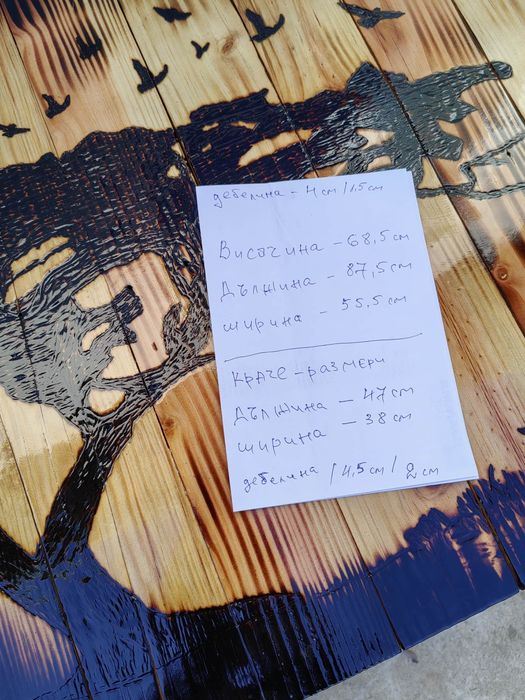 дебелина - 4 см / 1,5 см
Височина - 68,5 см
Дължина - 87,5 см
ширина - 55,5 см
Краче - размери
Дължина - 47 см
ширина - 38 см
дебелина / 4,5 см / 2 см